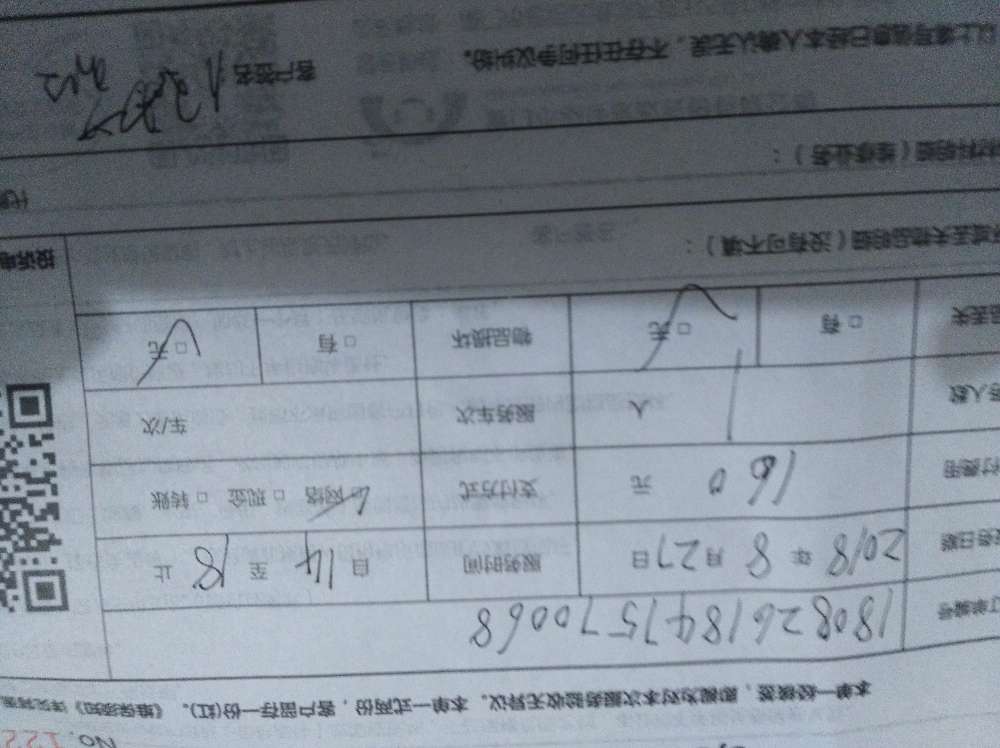 No. 122
本单一经核签，即视为对本次服务验收无异议。本单一式两份，客户留存一份(红)。《维保须知》详见背
订单编号 180826184757 0068
服务日期 2018 年 8 月 27 日 服务时间 自 14 至 18 止
付费用 160 元 支付方式 网络 □ 现金 □ 转账
务人数 1 人 服务车次 车/次
品丢失 □ 有 □ 无 物品损坏 □ 有 □ 无
或丢失物品明细（没有可不填）：
投诉电
材料明细（维修业务）：
以上填写信息已经本人确认无误，不存在任何争议纠纷。 客户签名